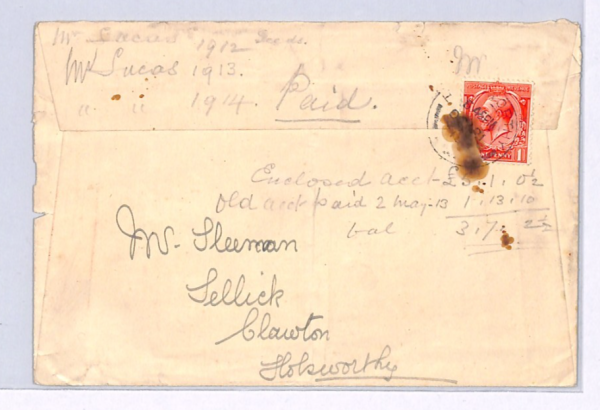 Mr Lucas 1912 Seeds.
Mr Lucas 1913.
" " 1914. Paid.
Mr
Enclosed acct £5.1.0½
Old acct paid 2 May.13 1.13.10
bal 3.7.2½
Mr. Sleeman
Sellick
Clawton
Holsworthy
1